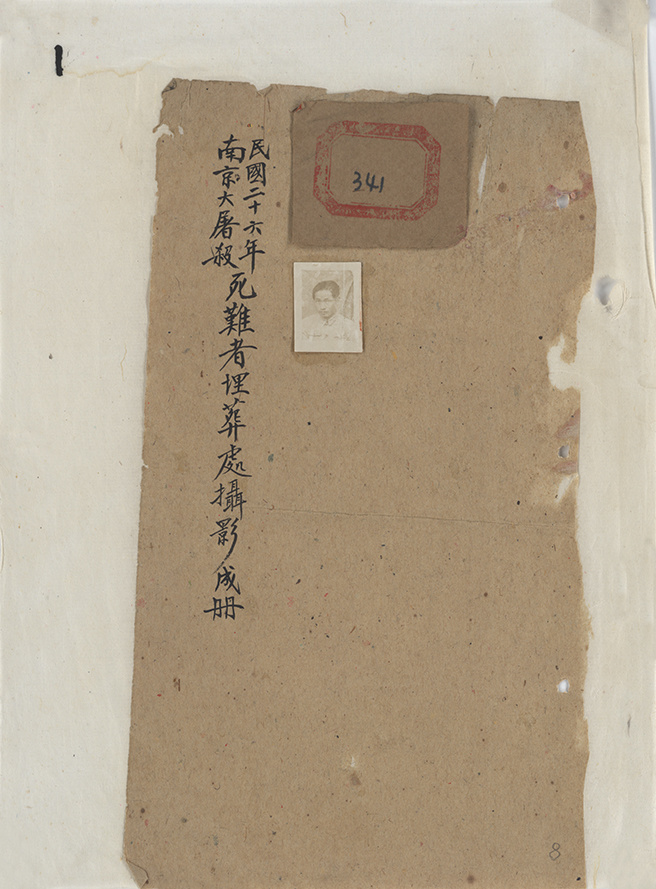 民國二十六年
南京大屠殺
死難者埋葬處攝影成册
341
8